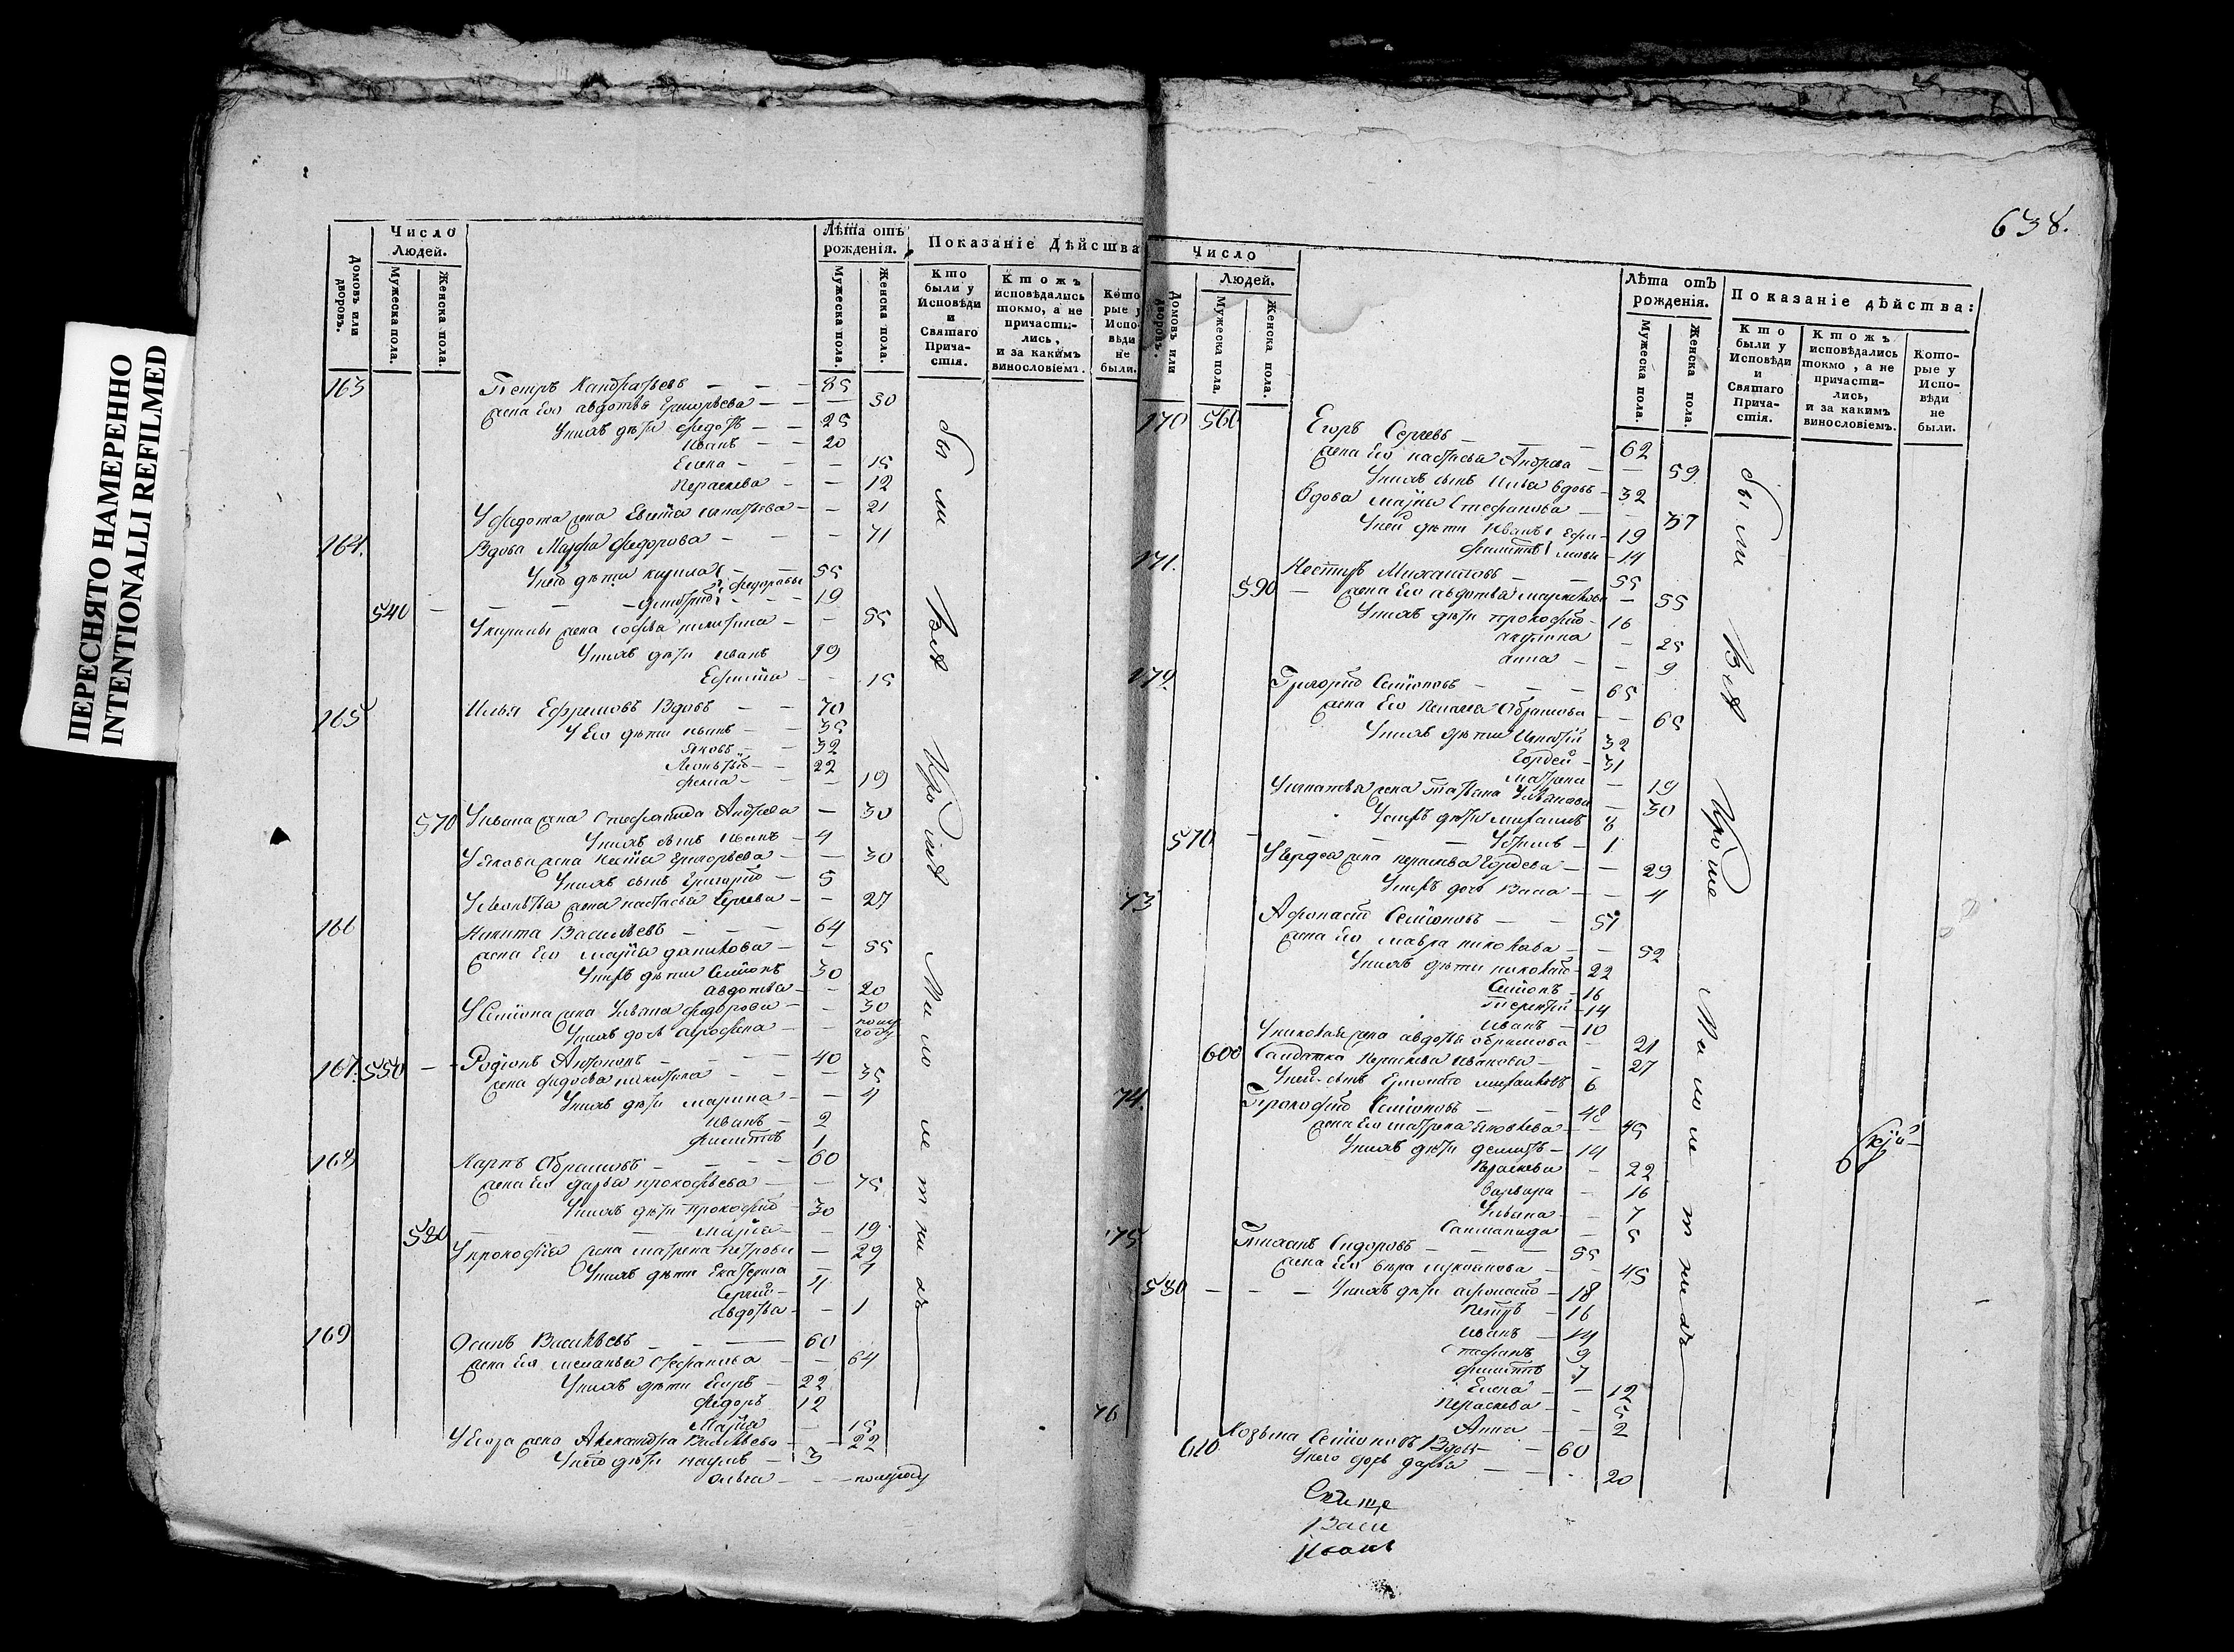 ПЕРЕСНЯТО НАМЕРЕННО
INTENTIONALLI REFILMED
Домовъ или дворовъ.
Число Людей.
Мужеска пола.
Женска пола.
Лѣта отъ рожденія.
Мужеска пола.
Женска пола.
Показаніе Дѣйства
Кто были у Исповѣди и Святаго Прича-стія.
Ктожъ исповѣдались токмо, а не причасти-лись, и за какимъ винословіемъ.
Кото рые у Испо-вѣди не были.
163 Петръ — — 85
жена Его авдотья Григорьева — — 50
У нихъ дѣти Федотъ — — 25
Иванъ — — 20
Елена — — 15
Пераскева — — 12
У Федота жена — — 21
164. Вдова Марфа Федорова — — 71
У него дѣти кирила — 55
Федоровы
— 19
540 — У кирилы жена софья никитина — — 55
У нихъ дѣти иванъ 29
— 15
165 Илья Ефремовъ Вдовъ — — 70
У Его дѣти иванъ — — 35
Яковъ — — 32
Леонтій — — 22
— — 19
570 У ивана жена Степанида Андреева — 30
У нихъ сынъ Иванъ — 4
У якова жена Григорьева — — 30
У нихъ сынъ Григорій — 5
У Леонтья жена настасья Сергеева — — 27
166 Никита Васильевъ — — — 64
жена Его Марья — — 55
У нихъ дѣти Семіонъ 30
авдотья — — 20
У Семіона жена Ульяна Федорова — 30
У нихъ дочь — — полу году
167. 550 — — Родіонъ Антоновъ — — 40
жена Федосья никитина — — — 35
У нихъ дѣти марина — — 4
иванъ — 2
филиппъ 1
168 Карпъ Абрамовъ — — — 60
жена Его дарья прокофьева — — 75
У нихъ дѣти прокофій — 30
580 — — Марья — — 19
У прокофья жена матрена петрова — 29
У нихъ дѣти Екатерина — 7
Сергій — 4
Авдотья — — 1
169 Осипъ Васильевъ — — — 60
жена Его Стефанова — — 64
У нихъ дѣти Егоръ — 22
Федоръ 12
Марья — 15
У Егора жена Александра Васильева — — 22
У него дѣти наумъ — 3
— — — полугоду
были Вся Про шя Мило ле т ни хъ
638.
Домовъ или дворовъ.
Число Людей.
Мужеска пола.
Женска пола.
Лѣта отъ рожденія.
Мужеска пола.
Женска пола.
Показаніе дѣйства:
Кто были у Исповѣди и Святаго Прича-стія.
Ктожъ исповѣдались токмо, а не причасти-лись, и за какимъ винословіемъ.
Кото-рые у Испо-вѣди не были.
170 560 Егоръ Сергеевъ — — — 62
жена Его настасья Андреева — — 59
У нихъ сынъ Илья вдовъ — 32
Вдова марья Стефанова — — 37
У ней дѣти Иванъ — 19
филиппъ — 14
171. Нестеръ Михаиловъ — — 55
590 — жена Его авдотья — 55
У нихъ дѣти прокофій — 16
акулина — 25
анна — — 9
Григорій Семіоновъ — — — 65
жена Его Абрамова — — 65
У нихъ дѣти Игнатій 32
Гордей — 31
Матрена — 19
У игнатья жена татьяна Ульянова — 30
У нихъ дѣти михаилъ 8
570 — — — — 1
У Гордея жена Гордеева — — 29
У нихъ дочь Васа — — 4
73 Афонасій Семіоновъ — — 51
жена Его мавра николаева — — 52
У нихъ дѣти николай — 22
Семіонъ — 16
Терентій — 14
иванъ — 10
У николая жена авдотья абрамова — 21
600 Салдатка Пераскева иванова — — 27
У ней сынъ михаиловъ 6
74. Прокофій Семіоновъ — — 48
жена Его матрена Яковлева — — 45
У нихъ дѣти — 14
Пераскева — 22
Варвара — 16
Ульяна — — 7
— 5
175. Сидоровъ — — — 55
жена Его — — 45
530 — — — У нихъ дѣти афонасій — 18
Петръ — 16
Иванъ — 14
Стефанъ 9
филиппъ 7
Елена — — 12
Пераскева — — 5
Анна — — 2
76 Козьма Семіоновъ Вдовъ — — 60
610 У него дочь дарья — — — 20
были Вся Про шие Мило ле т нихъ
Свище
Васи
Иоанъ